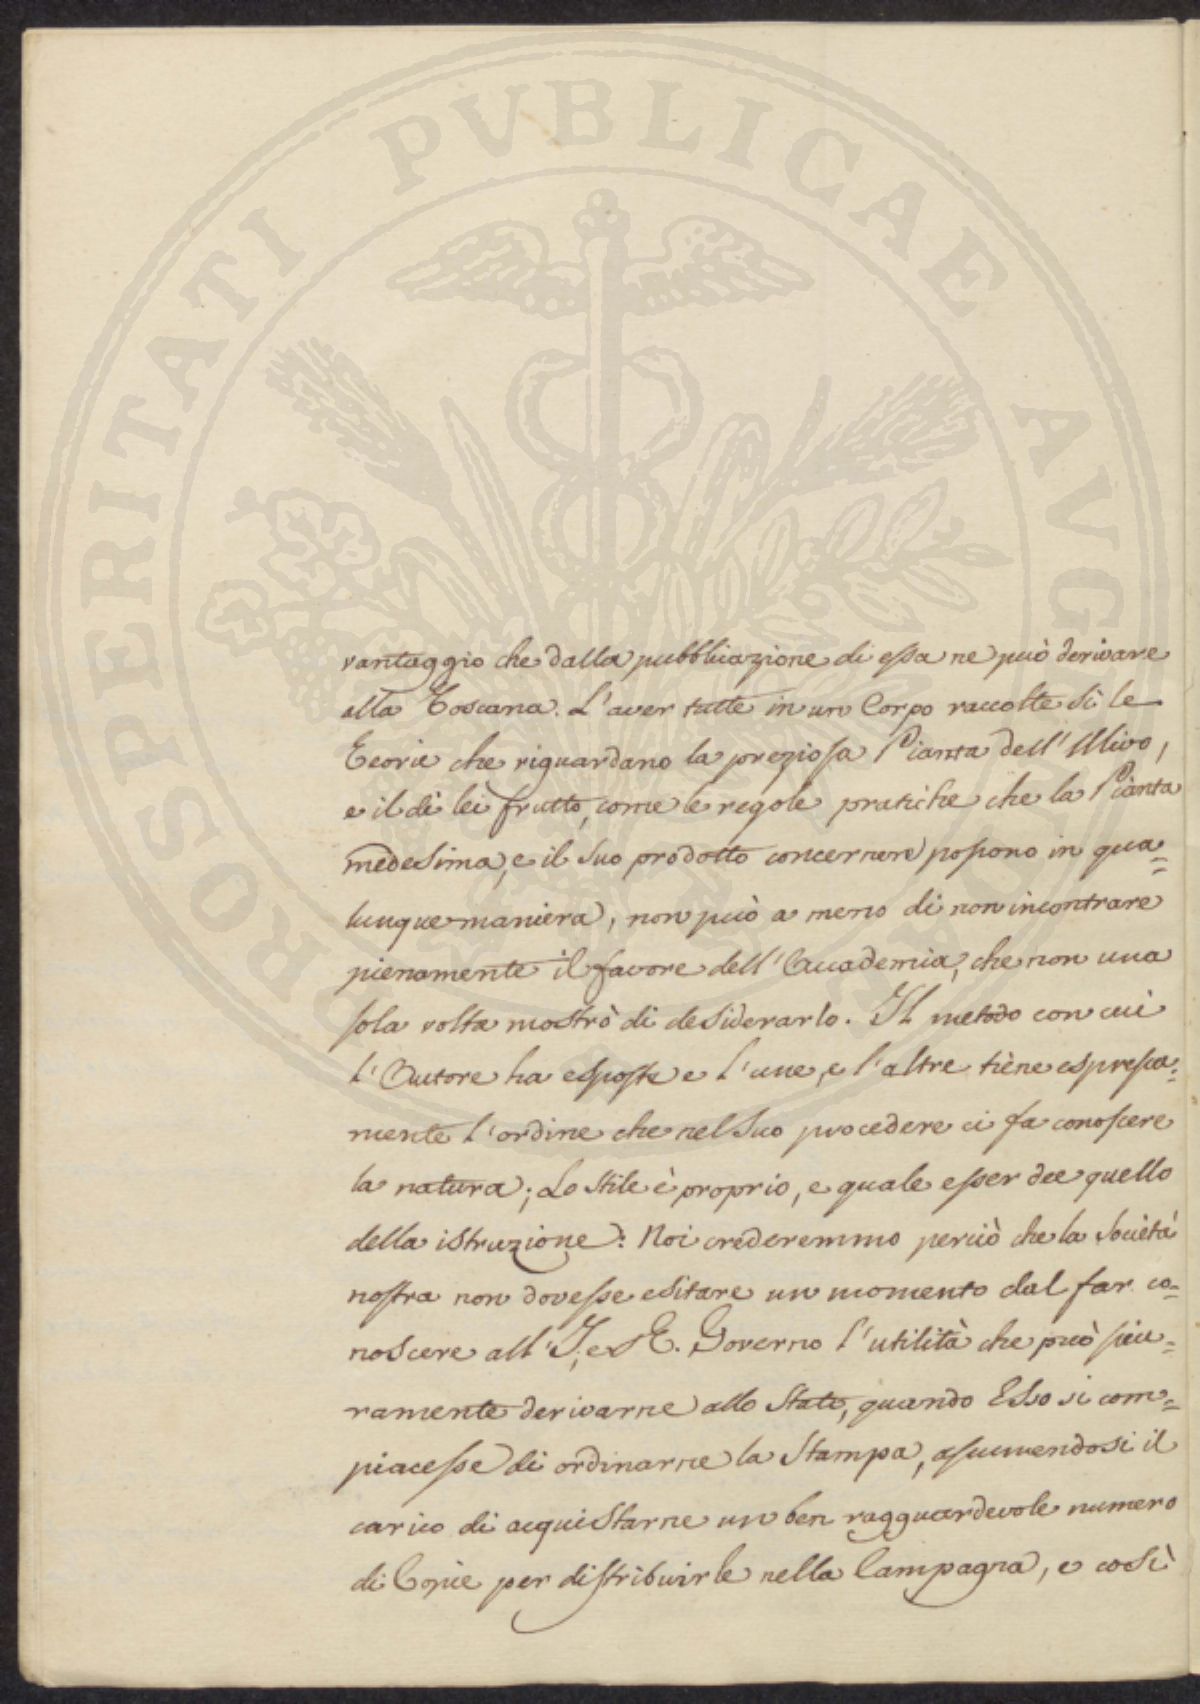 PROSPERITATI PUBLICAE AUGENDAE
vantaggio che dalla pubblicazione di essa ne può derivare
alla Toscana. L'aver tutte in un Corpo raccolte sì le
Teorie che riguardano la preziosa Pianta dell'Ulivo,
e il di lei frutto, come le regole pratiche che la Pianta
medesima, e il suo prodotto concernere possono in qua=
lunque maniera, non può a meno di non incontrare
pienamente il favore dell'Accademia, che non una
sola volta mostrò di desiderarlo. Il metodo con cui
l'Autore ha esposte e l'une, e l'altre tiene espressa=
mente l'ordine che nel suo procedere ci fa conoscere
la natura; Lo stile è proprio, e quale esser dee quello
della istruzione: Noi crederemmo perciò che la Società
nostra non dovesse esitare un momento dal far co=
noscere all'I. e R. Governo l'utilità che può sicu=
ramente derivarne allo Stato, quando Esso si com=
piacesse di ordinarne la Stampa, assumendosi il
carico di acquistarne un ben ragguardevole numero
di Copie per distribuirle nella Campagna, e così